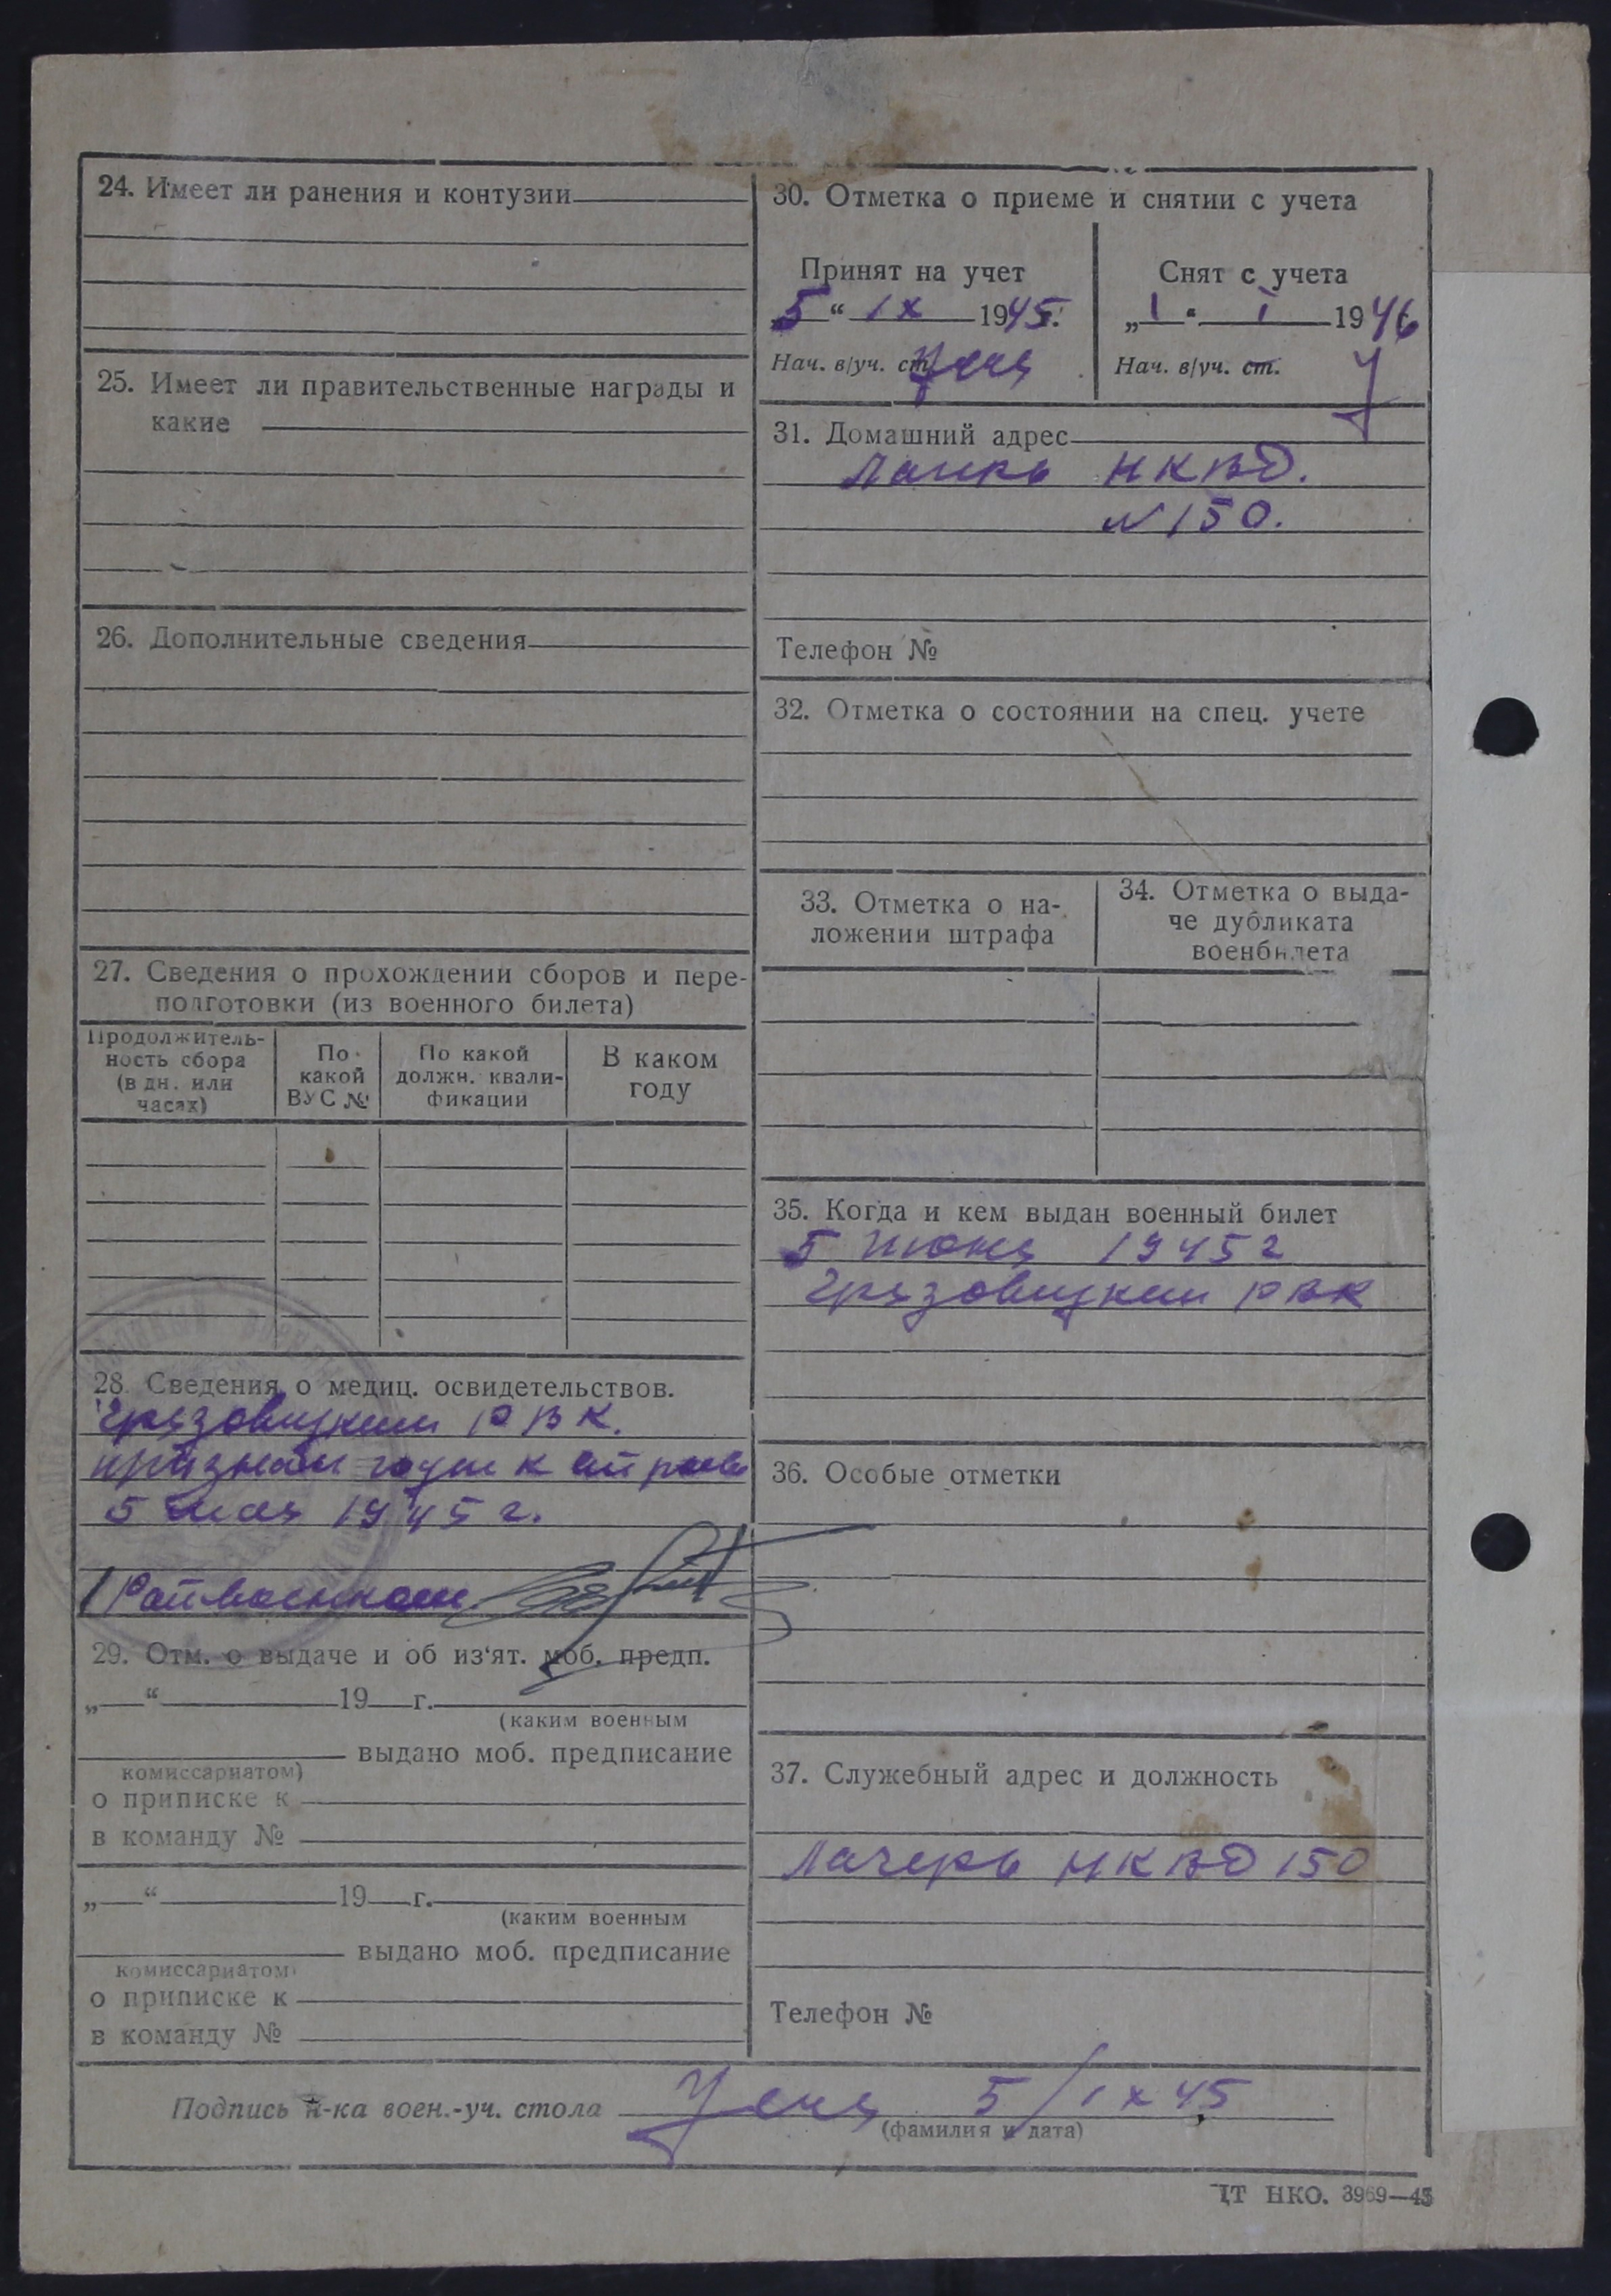 24. Имеет ли ранения и контузии
25. Имеет ли правительственные награды и
какие
26. Дополнительные сведения
27. Сведения о прохождении сборов и пере-
подготовки (из военного билета)
Продолжитель-
ность сбора
(в дн. или
часах)
По
какой
ВУС №
По какой
должн. квали-
фикации
В каком
году
28. Сведения о медиц. освидетельствов.
Грязовецким РВК.
признан годен к
5 мая 1945 г.
/Райвоенком
29. Отм. о выдаче и об из'ят. моб. предп.
„ “ 19 г.
(каким военным
выдано моб. предписание
комиссариатом)
о приписке к
в команду №
„ “ 19 г.
(каким военным
выдано моб. предписание
комиссариатом)
о приписке к
в команду №
30. Отметка о приеме и снятии с учета
Принят на учет
5 “ IX 1945 г.
Нач. в/уч. ст.
Снят с учета
„ 1 “ I 1946
Нач. в/уч. ст.
31. Домашний адрес
Лагерь НКВД.
N 150.
Телефон №
32. Отметка о состоянии на спец. учете
33. Отметка о на-
ложении штрафа
34. Отметка о выда-
че дубликата
военбилета
35. Когда и кем выдан военный билет
5 июня 1945 г
Грязовецким РВК
36. Особые отметки
37. Служебный адрес и должность
Лагерь НКВД 150
Телефон №
Подпись н-ка воен.-уч. стола 5/IX 45
(фамилия и дата)
ЦТ НКО. 3969—45